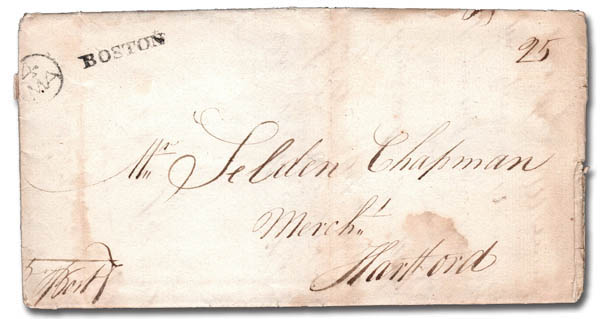 BOSTON
25
Mr Selden Chapman
Mercht
Hartford
Post